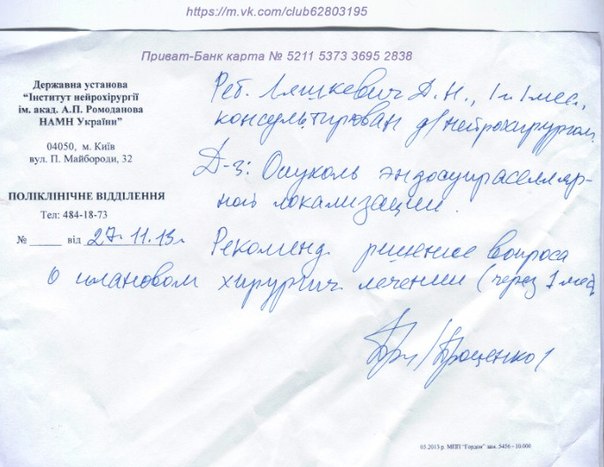 https://m.vk.com/club62803195
Приват-Банк карта № 5211 5373 3695 2838
Державна установа
“Інститут нейрохірургії
ім. акад. А.П. Ромоданова
НАМН України”
04050, м. Київ
вул. П. Майбороди, 32
ПОЛІКЛІНІЧНЕ ВІДДІЛЕННЯ
Тел: 484-18-73
№ _____ від 27.11.13г.
Реб. Ляшкевич Д.Н., 1г. 1мес.,
консультирован д/нейрохирургом.
Д-з: Опухоль эндосупраселляр-
ной локализации.
Рекоменд. решение вопроса
о плановом хирургич. лечении (через 1 мес
/Проценко/
05.2013 р. МПП "Гордон" зам. 5456 - 10.000